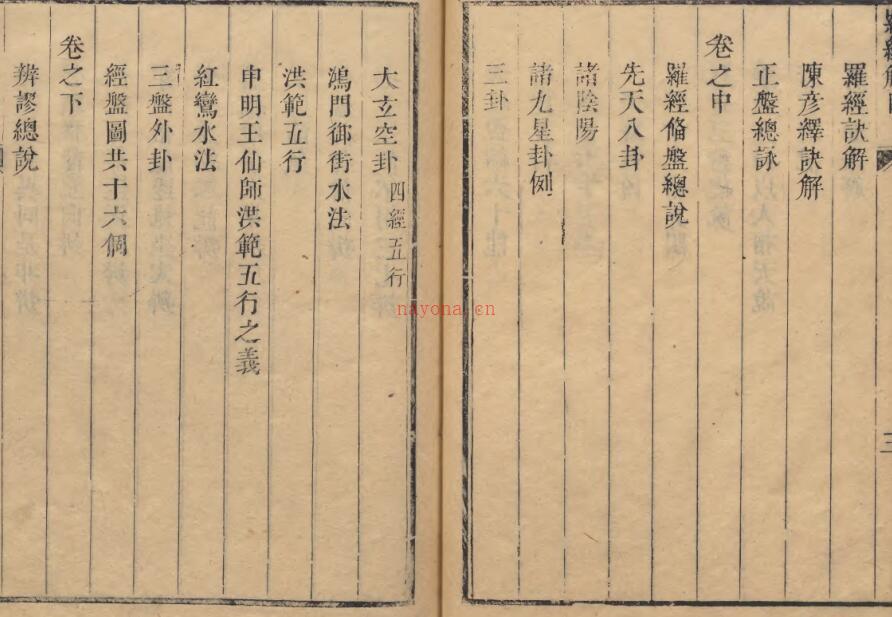 羅經訣解
陳彥繹訣解
正盤總詠
卷之中
羅經脩盤總說
先天八卦
諸陰陽
諸九星卦例
三卦
三
大玄空卦 四經五行
鴻門御街水法
洪範五行
申明王仙師洪範五行之義
紅鸞水法
三盤外卦
經盤圖共十六個
卷之下
辨謬總說
nayona.cn